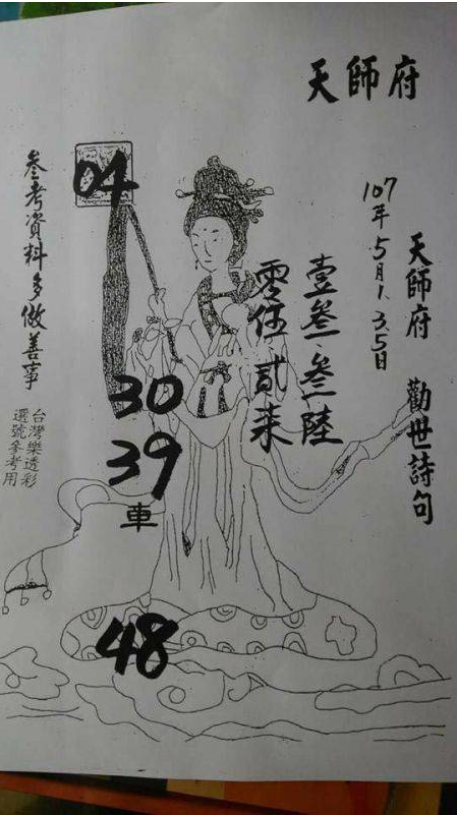 天師府
天師府 勸世詩句
107年5月1.3.5日
壹叁.叁陸
零伍貳柒
04
30
39
車
48
參考資料多做善事
台灣樂透彩
選號參考用